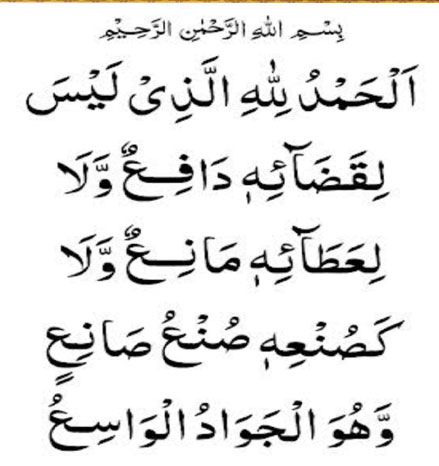 بِسْمِ اللهِ الرَّحْمٰنِ الرَّحِيْمِ
اَلْحَمْدُ لِلّٰهِ الَّذِىْ لَيْسَ
لِقَضَآئِهٖ دَافِعٌ وَّلَا
لِعَطَآئِهٖ مَانِعٌ وَّلَا
كَصُنْعِهٖ صُنْعُ صَانِعٍ
وَّهُوَ الْجَوَادُ الْوَاسِعُ